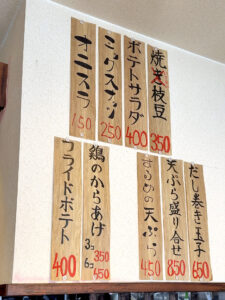 焼き枝豆
350
ポテトサラダ
400
ミックスナッツ
250
オニスラ
150
だし巻き玉子
650
天ぷら盛り合せ
850
するめの天ぷら
450
鶏のからあげ
3コ 350
6コ 450
フライドポテト
400